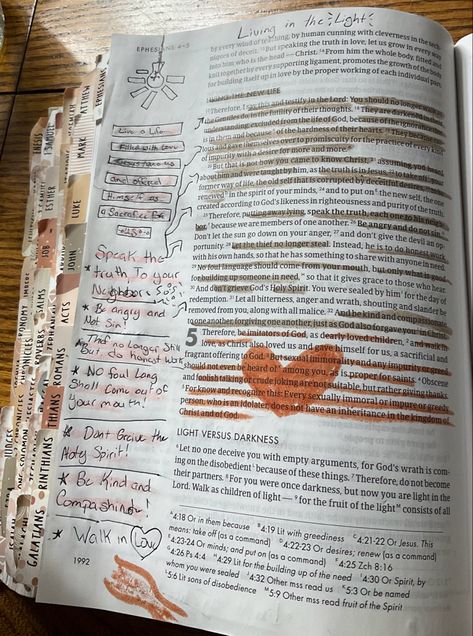 Living in the Light
EPHESIANS 4–5
by every wind of teaching, by human cunning with cleverness in the tech-
niques of deceit. 15 But speaking the truth in love, let us grow in every way
into him who is the head — Christ. 16 From him the whole body, fitted and
knit together by every supporting ligament, promotes the growth of the body
for building itself up in love by the proper working of each individual part.
LIVING THE NEW LIFE
17 Therefore, I say this and testify in the Lord: You should no longer walk as
the Gentiles do, in the futility of their thoughts. 18 They are darkened in their
understanding, excluded from the life of God, because of the ignorance that
is in them and because of the hardness of their hearts. 19 They became
callous and gave themselves over to promiscuity for the practice of every kind
of impurity with a desire for more and more.
20 But that is not how you came to know Christ, 21 assuming you heard
about him and were taught by him, as the truth is in Jesus, 22 to take off your
former way of life, the old self that is corrupted by deceitful desires, 23 to be
renewed in the spirit of your minds, 24 and to put on the new self, the one
created according to God's likeness in righteousness and purity of the truth.
25 Therefore, putting away lying, speak the truth, each one to his neigh-
bor, because we are members of one another. 26 Be angry and do not sin.
Don't let the sun go down on your anger, 27 and don't give the devil an op-
portunity. 28 Let the thief no longer steal. Instead, he is to do honest work
with his own hands, so that he has something to share with anyone in need.
29 No foul language should come from your mouth, but only what is good
for building up someone in need, so that it gives grace to those who hear.
30 And don't grieve God's Holy Spirit. You were sealed by him for the day of
redemption. 31 Let all bitterness, anger and wrath, shouting and slander be
removed from you, along with all malice. 32 And be kind and compassionate
to one another, forgiving one another, just as God also forgave you in Christ.
5 Therefore, be imitators of God, as dearly loved children, 2 and walk in
love, as Christ also loved us and gave himself for us, a sacrificial and
fragrant offering to God. 3 But sexual immorality and any impurity or greed
should not even be heard of among you, as is proper for saints. 4 Obscene
and foolish talking or crude joking are not suitable, but rather giving thanks.
5 For know and recognize this: Every sexually immoral or impure or greedy
person, who is an idolater, does not have an inheritance in the kingdom of
Christ and of God.
LIGHT VERSUS DARKNESS
6 Let no one deceive you with empty arguments, for God's wrath is com-
ing on the disobedient because of these things. 7 Therefore, do not become
their partners. 8 For you were once darkness, but now you are light in the
Lord. Walk as children of light — 9 for the fruit of the light consists of all
4:18 Or in them because 4:19 Lit with greediness 4:21-22 Or Jesus. This
means: take off (as a command) 4:22-23 Or desires; renew (as a command)
4:23-24 Or minds; and put on (as a command) 4:25 Zch 8:16
4:26 Ps 4:4 4:29 Lit for the building up of the need 4:30 Or Spirit, by
whom you were sealed 4:32 Other mss read us 5:3 Or be named
5:6 Lit sons of disobedience 5:9 Other mss read fruit of the Spirit
Live a Life
Filled with Love
and offered
Himself as
a Sacrifice for
us
Speak the
Truth To your
Neighbor
* Be angry and
Not Sin!
Thief no Longer Steal
But do honest work
* No foul Lang
Shall Come out of
Your mouth!
* Dont Greive the
Holy Spirit!
* Be Kind and
Compashinate!
* Walk in Love
1992
EPHESIANS
MATTHEW
MARK
LUKE
JOHN
ACTS
ROMANS
CORINTHIANS
GALATIANS
SAMUEL
ESTHER
JOB
PSALMS
PROVERBS
JUDGES
CHRONICLES